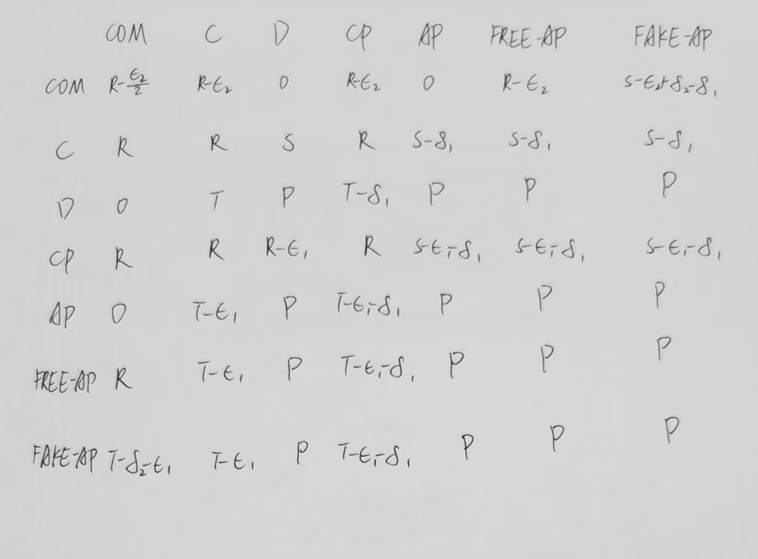 COM C D CP AP FREE-AP FAKE-AP
COM R-ε₂/2 R-ε₂ 0 R-ε₂ 0 R-ε₂ S-ε₂+δ₂-δ₁
C R R S R S-δ₁ S-δ₁ S-δ₁
D 0 T P T-δ₁ P P P
CP R R R-ε₁ R S-ε₁-δ₁ S-ε₁-δ₁ S-ε₁-δ₁
AP 0 T-ε₁ P T-ε₁-δ₁ P P P
FREE-AP R T-ε₁ P T-ε₁-δ₁ P P P
FAKE-AP T-δ₂-ε₁ T-ε₁ P T-ε₁-δ₁ P P P